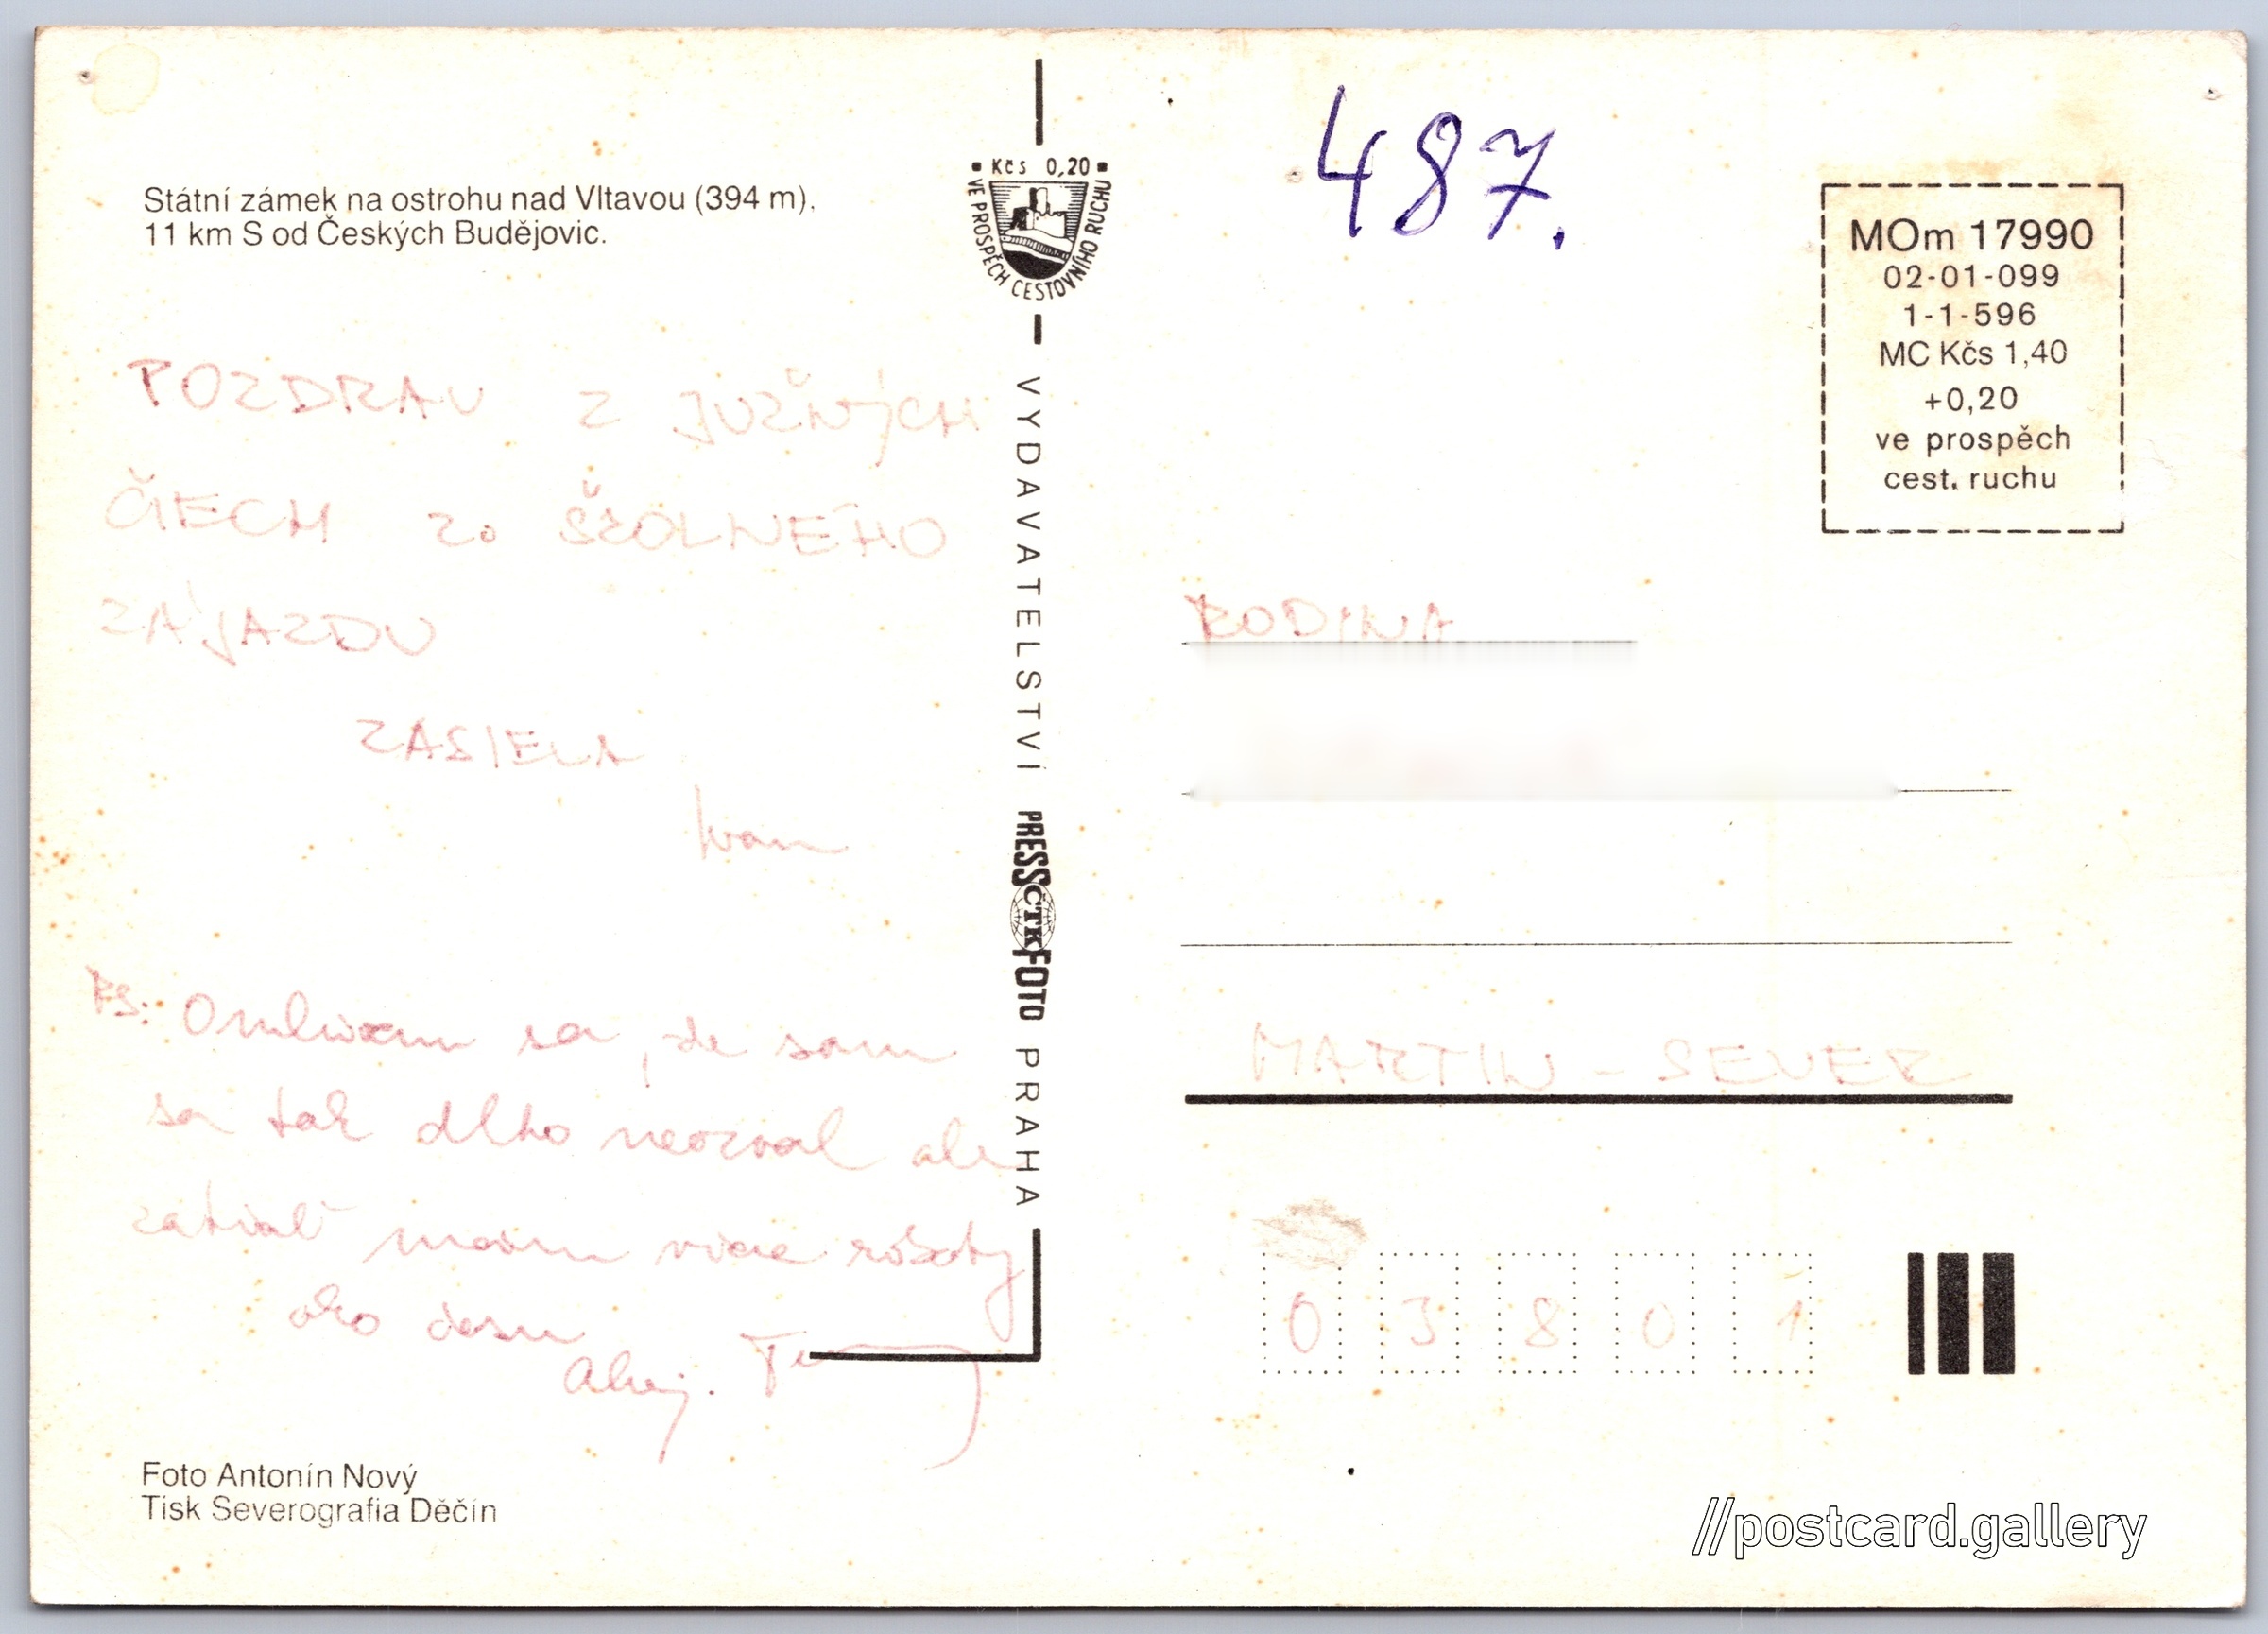 Státní zámek na ostrohu nad Vltavou (394 m).
11 km S od Českých Budějovic.
Kčs 0,20
VE PROSPĚCH CESTOVNÍHO RUCHU
487.
MOm 17990
02-01-099
1-1-596
MC Kčs 1,40
+0,20
ve prospěch
cest. ruchu
POZDRAV Z JUŽNÝCH
ČIECH zo ŠKOLNÉHO
ZÁJAZDU
ZASIELA
Ivan
PS: Omlúvam sa, že som
sa tak dlho neozval ale
zatiaľ mám viac roboty
ako času
Ahoj.
VYDAVATELSTVÍ PRESSFOTO PRAHA
ČTK
RODINA
MARTIN - SEVER
03801
Foto Antonín Nový
Tisk Severografia Děčín
//postcard.gallery